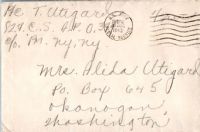 He T. Utigard
824 C.S. A.P.O.
c/o. P.M. N.Y., N.Y.
Mrs. Alida Utigard
P.O. Box 645
Okanogan,
Washington